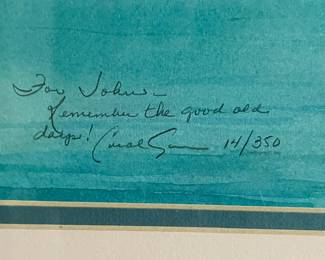 For John –
Remember the good old
days! Carol 14/350